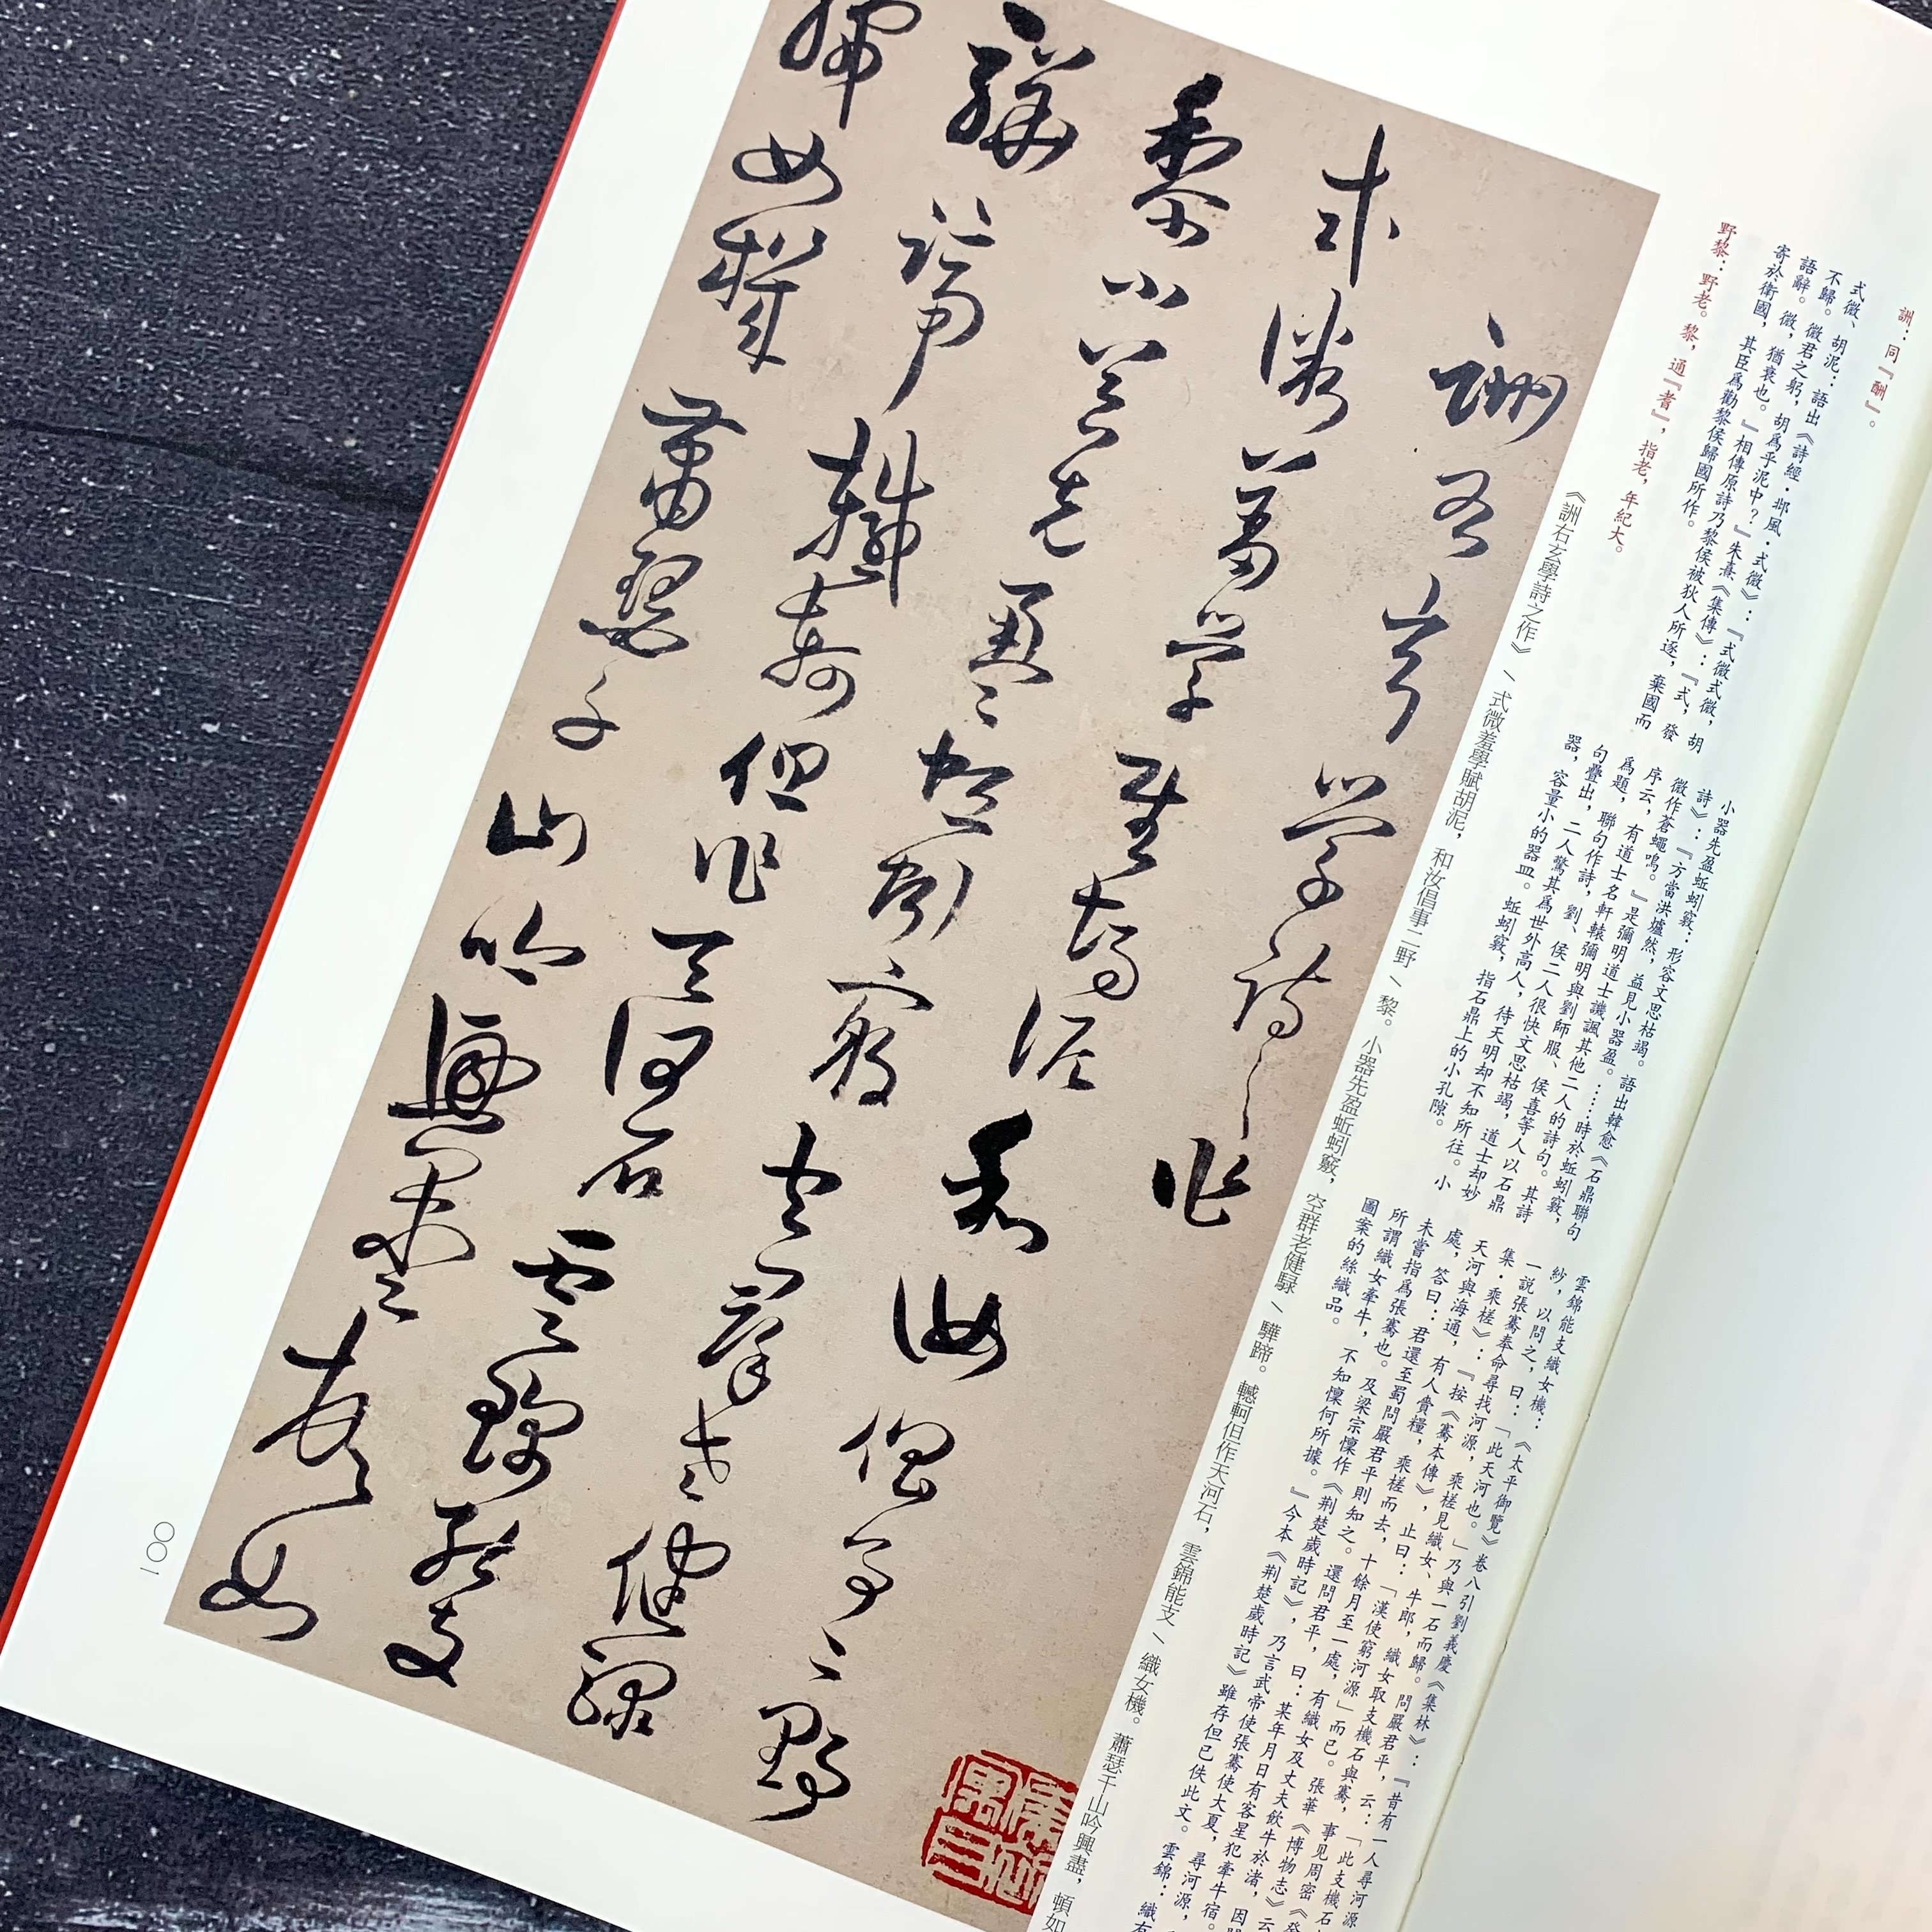 詶：同『酬』。
式微、胡泥：語出《詩經·邶風·式微》：『式微式微，胡
不歸。微君之躬，胡爲乎泥中？』朱熹《集傳》：『式，發
語辭。微，猶衰也。』相傳原詩乃黎侯被狄人所逐，棄國而
寄於衛國，其臣爲勸黎侯歸國所作。
野黎：野老。黎，通『耆』，指老，年紀大。
小器先盈蚯蚓竅：形容文思枯竭。語出韓愈《石鼎聯句
詩》：『方當洪爐然，益見小器盈。……時於蚯蚓竅，
微作蒼蠅鳴。』是彌明道士譏諷其他二人的詩句。其詩
序云，有道士名軒轅彌明與劉師服、侯喜等人以石鼎
爲題，聯句作詩，劉、侯二人很快文思枯竭，道士却妙
句疊出，二人驚其爲世外高人，待天明却不知所往。小
器，容量小的器皿。蚯蚓竅，指石鼎上的小孔隙。
雲錦能支織女機：《太平御覽》卷八引劉義慶《集林》：『昔有一人尋河源
紗，以問之，曰：「此天河也。」乃與一石而歸。問嚴君平，云：「此支機石
一説張騫奉命尋找河源，乘槎見織女、牛郎，織女取支機石與騫，事見周密《癸
集·乘槎》：『按《騫本傳》，止曰：「漢使窮河源」而已。張華《博物志》云
天河與海通，有人賫糧，乘槎而去，十餘月至一處，有織女及丈夫飲牛於渚，因
處，答曰：君還至蜀問嚴君平則知之。還問君平，曰：某年月日有客星犯牽牛宿。
未嘗指爲張騫也。及梁宗懍作《荆楚歲時記》，乃言武帝使張騫使大夏，尋河源，
所謂織女牽牛，不知懍何所據。』今本《荆楚歲時記》雖存但已佚此文。雲錦：織有
圖案的絲織品。
《詶右玄學詩之作》\式微羞學賦胡泥，和汝倡事二野\黎。小器先盈蚯蚓竅，空群老健騄\驊蹄。轗軻但作天河石，雲錦能支\織女機。蕭瑟千山吟興盡，頓如
詶右玄學詩之作
式微羞學賦胡泥和汝倡事二野
黎小器先盈蚯蚓竅空群老健騄
驊蹄轗軻但作天河石雲錦能支
織女機蕭瑟千山吟興盡頓如
〇〇一